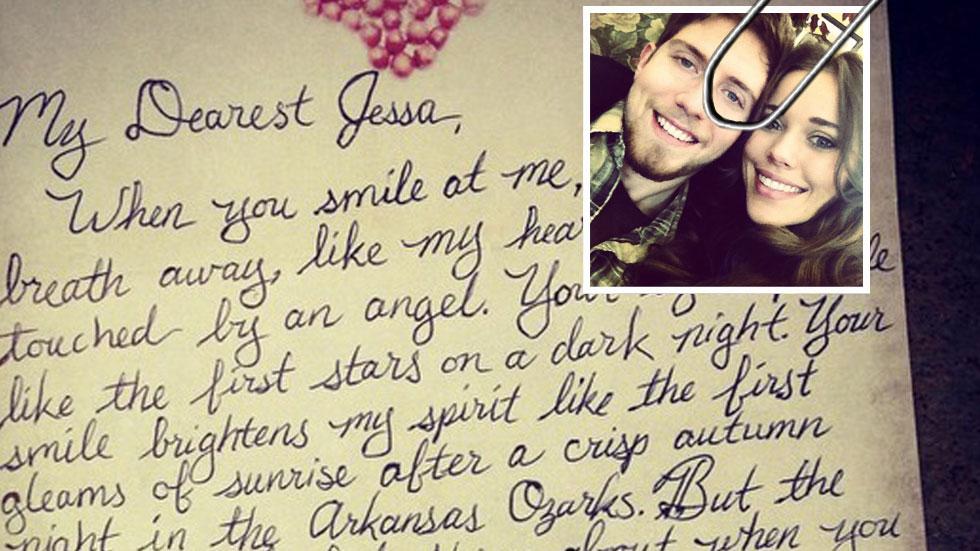 My Dearest Jessa,
When you smile at me,
breath away, like my
touched by an angel.
like the first stars on a dark night. Your
smile brightens my spirit like the first
gleams of sunrise after a crisp autumn
night in the Arkansas Ozarks. But the
about when you